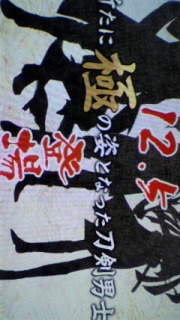 たに極の姿となった刀剣男士
12.5
登場